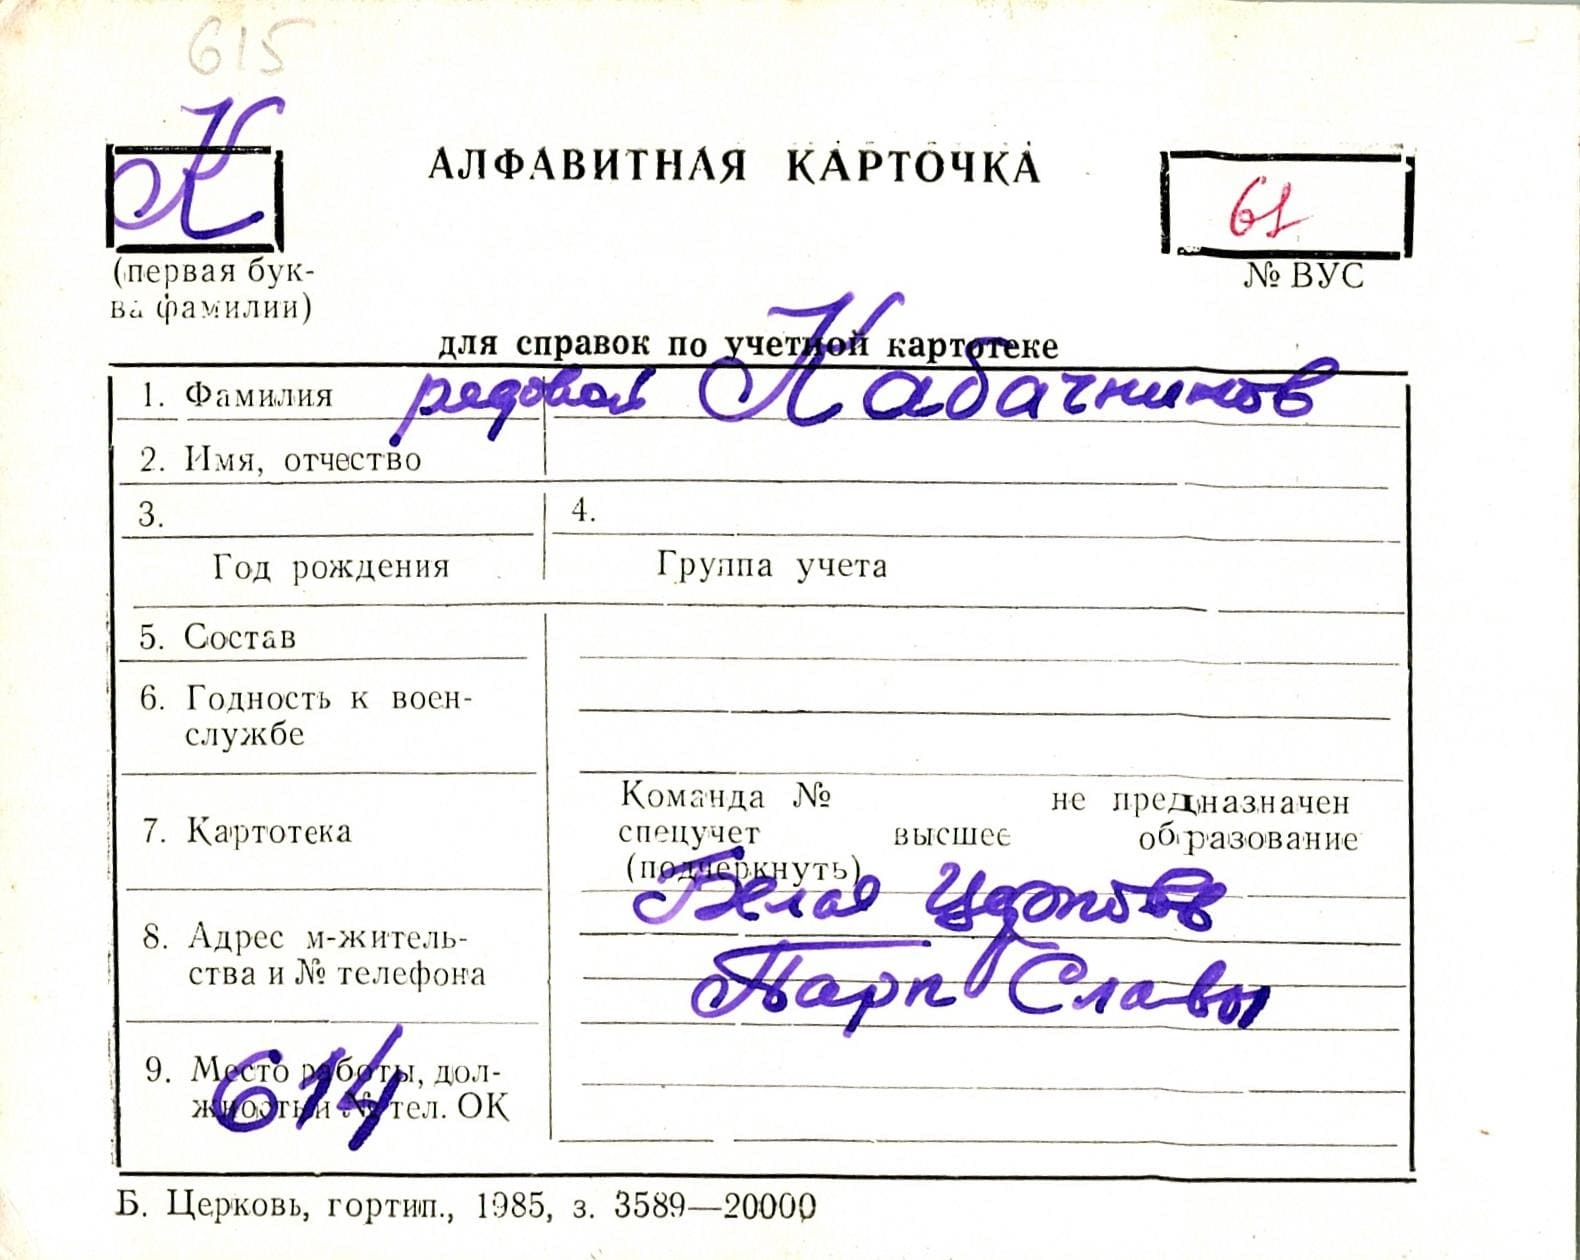 615
К
АЛФАВИТНАЯ КАРТОЧКА
61
(первая бук-
ва фамилии)
№ ВУС
для справок по учетной картотеке
1. Фамилия рядовой Кабачников
2. Имя, отчество
3.
4.
Год рождения
Группа учета
5. Состав
6. Годность к воен-
службе
7. Картотека
Команда № не предназначен
спецучет высшее образование
(подчеркнуть)
8. Адрес м-житель-
ства и № телефона
Белая Церковь
Парк Славы
9. Место работы, дол-
жность и № тел. ОК
614
Б. Церковь, гортип., 1985, з. 3589—20000